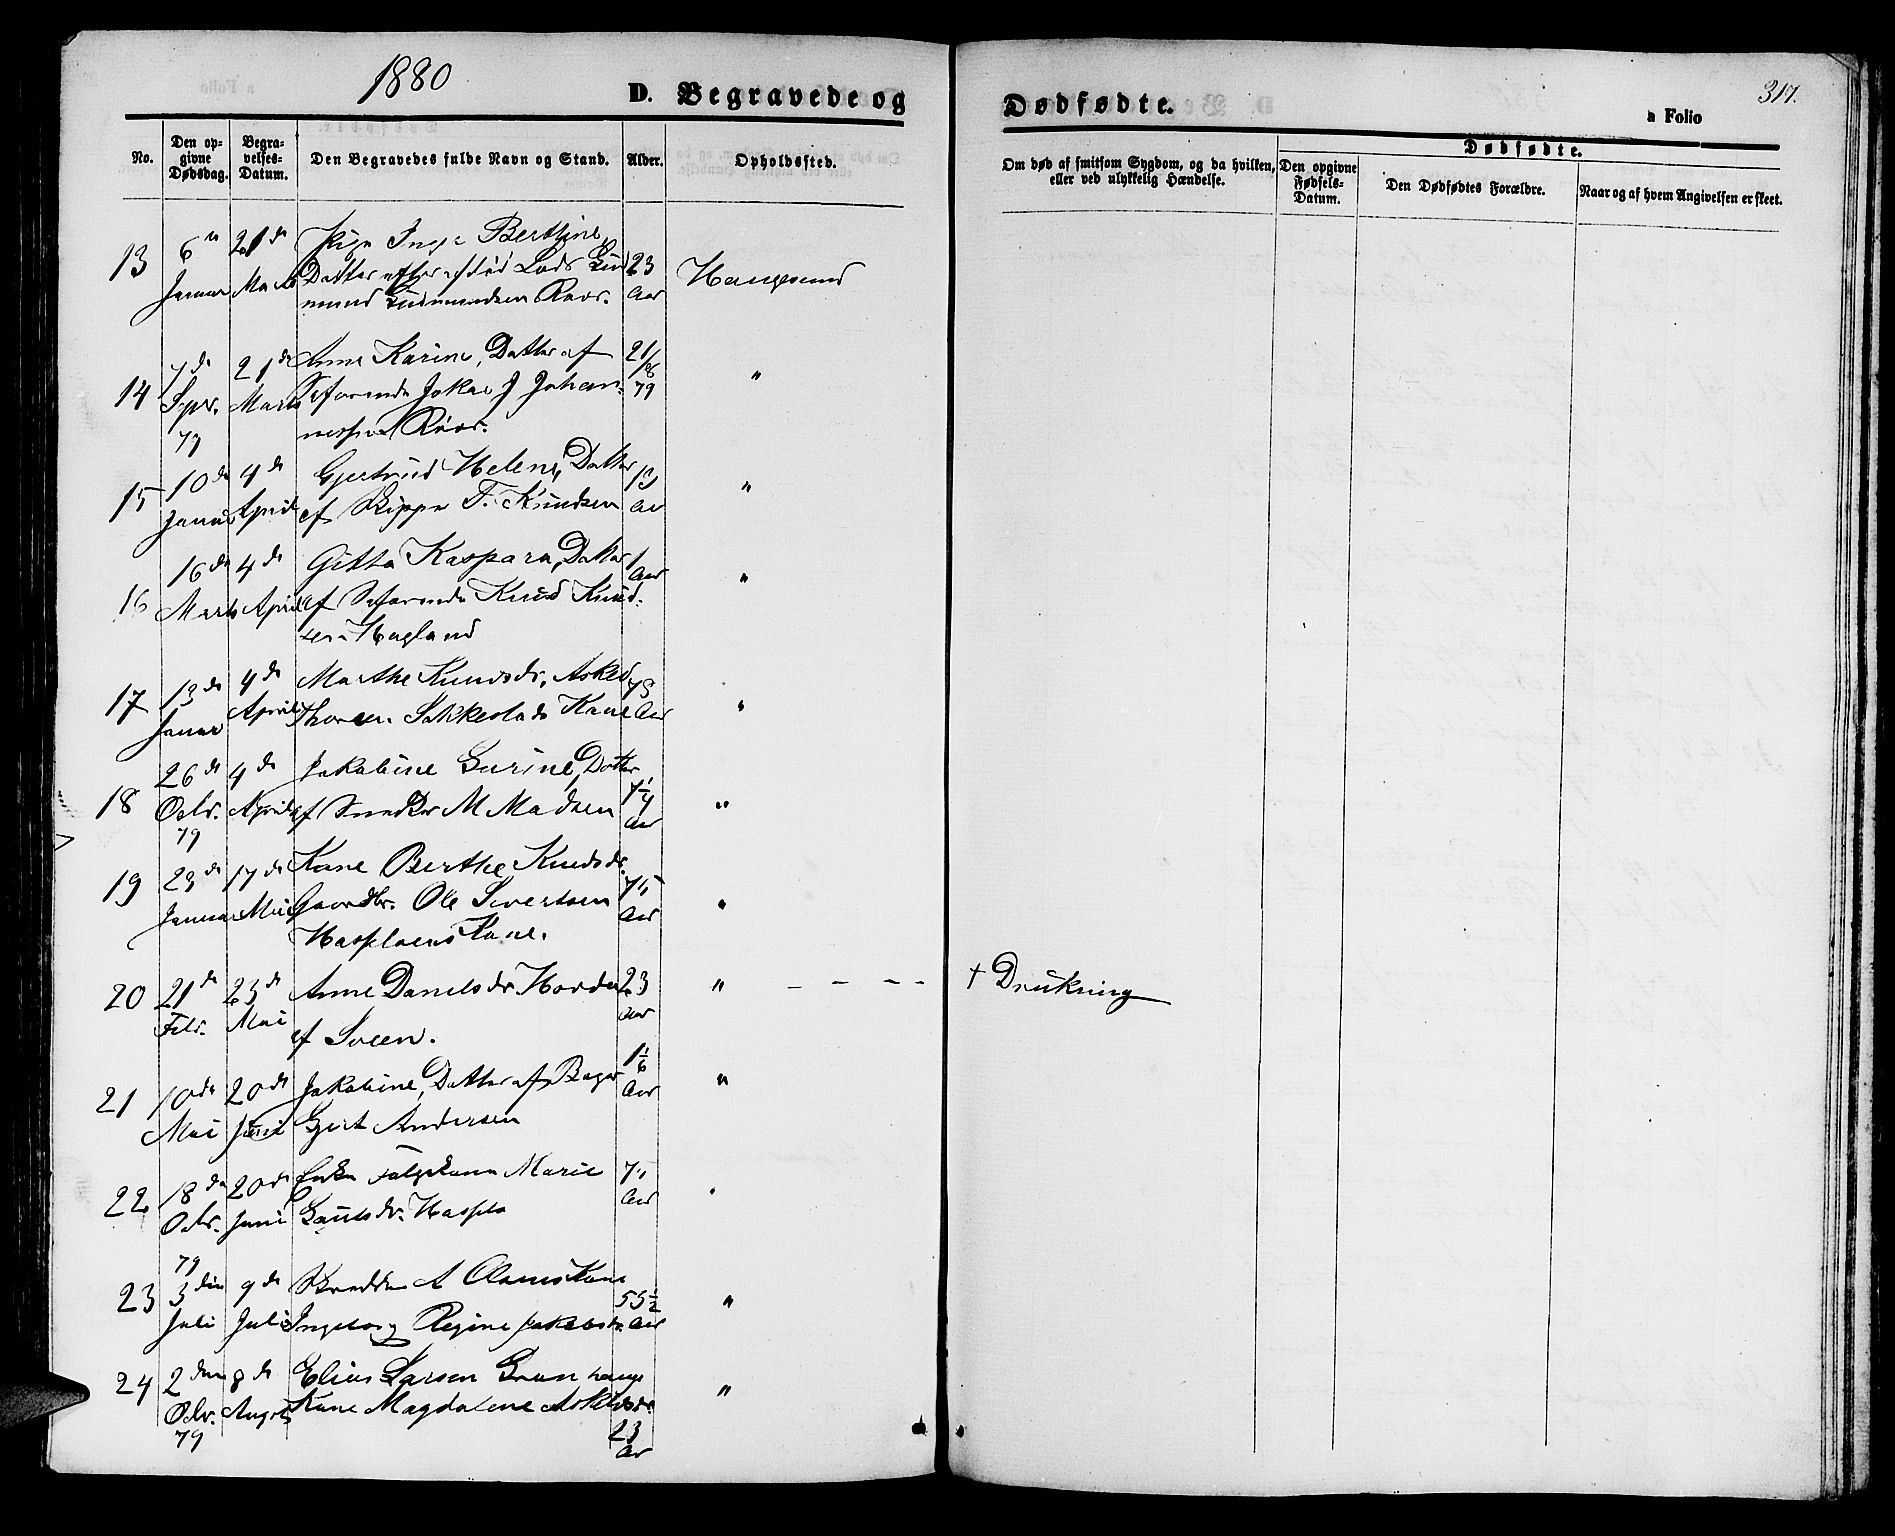 1880
D. Begravede og
Dødfødte.
317.
a Folio
No.
Den op-
givne
Dødsdag.
Begra-
velses-
Datum.
Den Begravedes fulde Navn og Stand.
Alder.
Opholdssted.
Om død af smitsom Sygdom, og da hvilken,
eller ved ulykkelig Hændelse.
Dødfødte.
Den opgivne
Fødsels-
Datum.
Den Dødfødtes Forældre.
Naar og af hvem Angivelsen er skeet.
13 6te Januar 21de Marts Pige Inge Bertine,
Datter af Lods Gud- 23 Aar Haugesund
mund Gudmundsen Røvær.
14 7de Sptr. 79 21de Marts Anne Karine, Datter af 21/8 79 "
Søfarende Jokar J Johan-
nessen Røvær.
15 10de Januar 4de April Gjertrud Helene, Datter 13 Aar "
af Skipper T. Knudsen
16 16de Marts 4de April Gitta Kaspara, Datter 1 Aar "
af Søfarende Knud Knud-
sen Hagland
17 13de Januar 4de April Marthe Knudsdr, Askild
Thorsen Sakkestads Kone Aar "
18 26de Octbr. 79 4de April Jakobine Gurine, Datter
af Snedker M Madsen Aar "
19 23de Januar 17de Mai Kone Berthe Knudsdr.
Gaardbr. Ole Sivertsen 75 Aar "
Hasseløens Kone.
20 21de Febr. 23de Mai Anne Danielsdr. 23 Aar " - - - - † Drukning
af Sveen.
21 10de Mai 20de Juni Jakobine, Datter af Bager 1 1/6 Aar "
Gjert Andersen
22 18de Octbr. 79 20de Juni Enke Marie
Gautsdr. Hasselø Aar "
23 3die Juli 9de Juli Skrædder A Olsens Kone
Ingeborg Regine Jakobsdr. 55 1/2 Aar "
24 2den Octbr. 79 8de August Elias Larsen Grønhaugs
Kone Magdalene Askildsdr. "
23 Aar